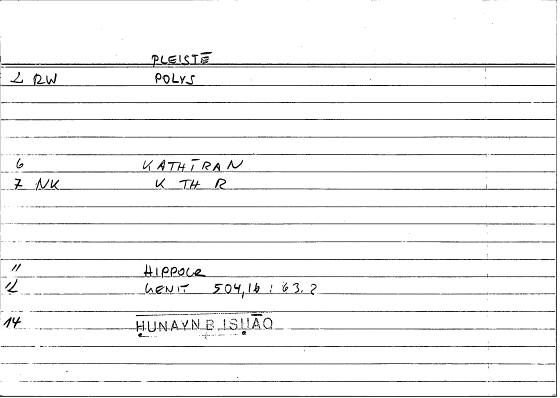 PLEISTĒ
2 RW POLYS
6 KATHĪRAN
7 NK K TH R
11 HIPPOCR
12 GENIT 504,16 : 63.2
14 ḤUNAYN B. ISḤĀQ